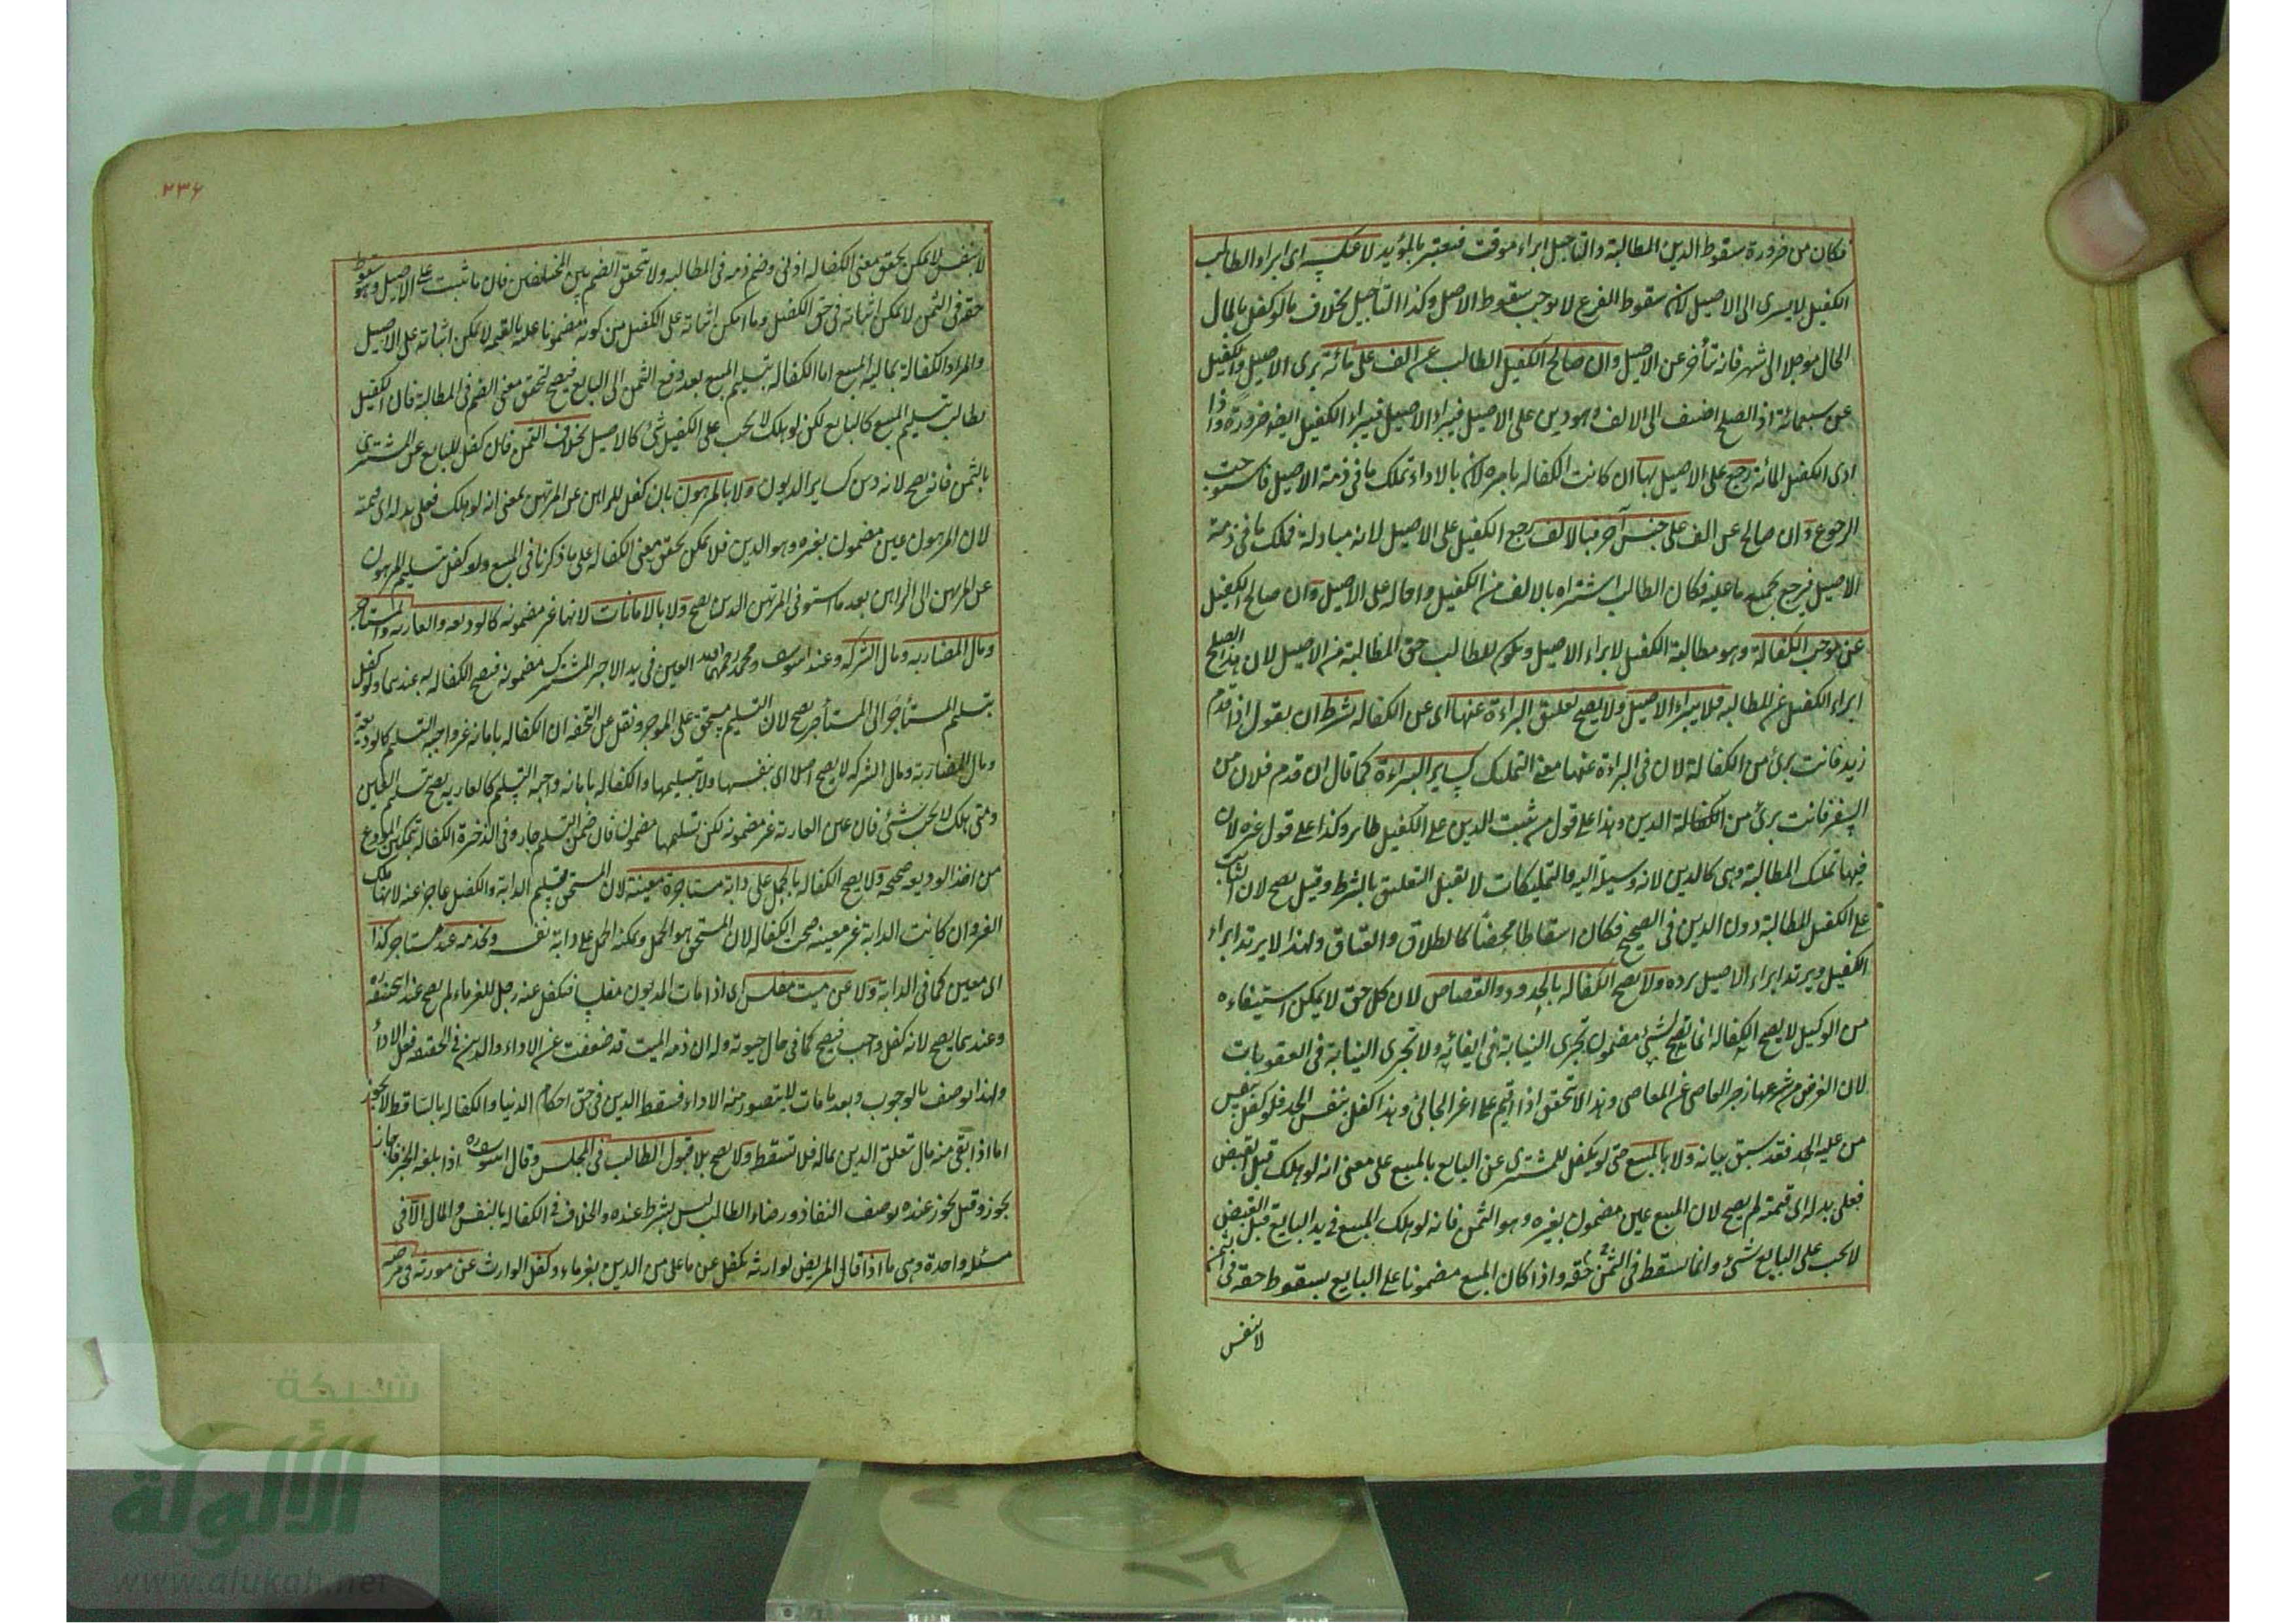 فكان من ضرورة سقوط الدين المطالبة والتأجيل ابراء موقت فيعتبر بالمؤبد لا عكسه اى ابراء الطالب
الكفيل لا يسرى الى الاصيل لان سقوط الفرع لا يوجب سقوط الاصل وكذا التأجيل بخلاف ما لو كفل بالمال
الحال موجلا الى شهر فانه يتأخر عن الاصيل وان صالح الكفيل الطالب عن الف على مائة برى الاصيل والكفيل
عن تسعمائة اذ الصلح اضيف الى الالف وهو دين على الاصيل فيبراء الاصيل فيبراء الكفيل ايضا ضرورة واذا
ادى الكفيل المائة رجع على الاصيل بها ان كانت الكفالة بامره لان بالاداء تملك ما فى ذمة الاصيل فاستوجب
الرجوع وان صالح عن الف على جنس آخر فبالالف رجع الكفيل على الاصيل لانه مبادلة فملك ما فى ذمة
الاصيل فيرجع بجميع ما عليه فكان الطالب اشتراه بالالف من الكفيل واحاله على الاصيل وان صالح الكفيل
عن موجب الكفالة وهو مطالبة الكفيل لا يبراء الاصيل ويكون للطالب حق المطالبة من الاصيل لان هذا الصلح
ابراء الكفيل عن المطالبة فلا يبراء الاصيل ولا يصح تعليق البراءة عنها اى عن الكفالة بشرط ان يقول اذا قدم
زيد فانت برئ من الكفالة لان فى البراءة عنها معنى التمليك كساير البراءة كما قال ان قدم فلان من
السفر فانت برئ من الكفالة الدين وهذا على قول من يثبت الدين على الكفيل ظاهر وكذا على قول غيره لان
فيها تمليك المطالبة وهى كالدين لانه وسيلة اليه والتمليكات لا تقبل التعليق بالشرط وقيل يصح لان الثابت
على الكفيل المطالبة دون الدين فى الصحيح فكان اسقاطا محضا كالطلاق والعتاق ولهذا لا يرتد ابراء
الكفيل ويرتد ابراء الاصيل برده ولا يصح الكفالة بالحدود والقصاص لان كل حق لا يمكن استيفاءه
من الوكيل لا يصح الكفالة انما تصح لشئ مضمون تجرى النيابة فى ايفائه ولا تجرى النيابة فى العقوبات
لان الغرض من شرعها زجر العاصى عن المعاصى وهذا لا يتحقق اذا اقيم على غير الجانى وهذا كفل بنفس الحد فلو كفل بنفس
من عليه الحد فقد سبق بيانه ولا بالمبيع حتى لو يكفل للمشترى عن البايع بالمبيع على معنى انه لو هلك قبل القبض
فعلى بدله اى قيمته لم يصح لان المبيع عين مضمون بغيره وهو الثمن فانه لو هلك المبيع فى يد البايع قبل القبض
لا يجب على البايع شئ وانما يسقط فى الثمن حقه واذا كان المبيع مضمونا على البايع بسقوط حقه فى الثمن
لا بنفس
٢٣٦
لا بنفس لا يمكن تحقق معنى الكفالة اذ هى وضم ذمة فى المطالبة ولا تحقق الضم بين المختلفين فان ما ثبت على الاصيل وهو سقوط
حقه فى الثمن لا يمكن اثباته فى حق الكفيل وما امكن اثباته على الكفيل من كونه مضمونا عليه بالقيمة لا يمكن اثباته على الاصيل
والمراد الكفالة بمالية المبيع اما الكفالة بتسليم المبيع بعد دفع الثمن الى البايع فيصح لتحقق معنى الضم فى المطالبة فان الكفيل
يطالب بتسليم المبيع كالبايع لكن لو هلك لا يجب على الكفيل شئ كالاصيل بخلاف الثمن فان كفل للبايع عن المشترى
بالثمن فانه يصح لانه دين كساير الديون ولا بالمرهون بان كفل للراهن عن المرتهن بمعنى انه لو هلك فعلى بدله اى قيمته
لان المرهون عين مضمون بغيره وهو الدين فلا يمكن تحقق معنى الكفالة على ما ذكرنا فى المبيع ولو كفل بتسليم المرهون
عن المرتهن الى الراهن بعد ما استوفى المرتهن الدين يصح ولا بالامانات لانها غير مضمونة كالوديعة والعارية والمستاجر
ومال المضاربة ومال الشركة وعند ابى يوسف ومحمد رحمهما الله العين فى يد الاجير المشترك مضمونة فيصح الكفالة به عندهما ولو كفل
بتسليم المستأجر الى المستأجر يصح لان التسليم مستحق على الموجر ونقل عن التحفة ان الكفالة بامانة غير واجبة التسليم كالوديعة
ومال المضاربة ومال الشركة لا يصح اصلا اى بنفسها ولا بتسليمها والكفالة بامانة واجبة التسليم كالعارية يصح بتسليم العين
ومتى هلك لا يجب شئ فان عين العارية غير مضمونة لكن تسليمها مضمون فان ضمن التسليم جاز وفى الذخيرة الكفالة بتمكين المودع
من اخذ الوديعة صحيحة ولا يصح الكفالة بالحمل على دابة مستاجرة معينة لان المستحق تسليم الدابة والكفيل عاجز عنه لانها ملك
الغير وان كانت الدابة غير معينة صحت الكفالة لان المستحق هو الحمل ويمكنه الحمل على دابة نفسه وبخدمة عبد مستاجر كذا
اى معين كما فى الدابة ولا عن ميت مفلس اى اذا مات المديون مفلسا فتكفل عنه رجل للغرماء لم يصح عند ابى حنيفة ره
وعندهما يصح لانه كفل واجب فيصح كما فى حال حيوته وله ان ذمة الميت قد ضعفت عن الاداء والدين فى الحقيقة فعل الاداء
ولهذا يوصف بالوجوب وبعد ما مات لا يتصور منه الاداء فسقط الدين فى حق احكام الدنيا والكفالة بالساقط لا يجوز
اما اذا بقى منه مال تعلق الدين بماله فلا تسقط ولا يصح بلا قبول الطالب فى المجلس وقال ابو يوسف ره اذا بلغه الخبر فاجاز
يجوز وقيل يجوز عنده بوصف النفاذ ورضاء الطالب ليس بشرط عنده والخلاف فى الكفالة بالنفس والمال الا فى
مسئلة واحدة وهى ما اذا قال المريض لوارثه تكفل عن ما على من الدين بغرماء وكفل الوارث عن مورثه فى مرضه
شبكة
الألوكة
www.alukah.net